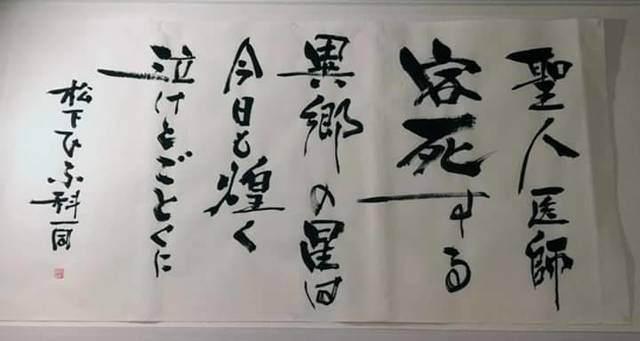 聖人医師
客死する
異郷の星は
今日も煌く
泣けとごとくに
松下ひふ科一同